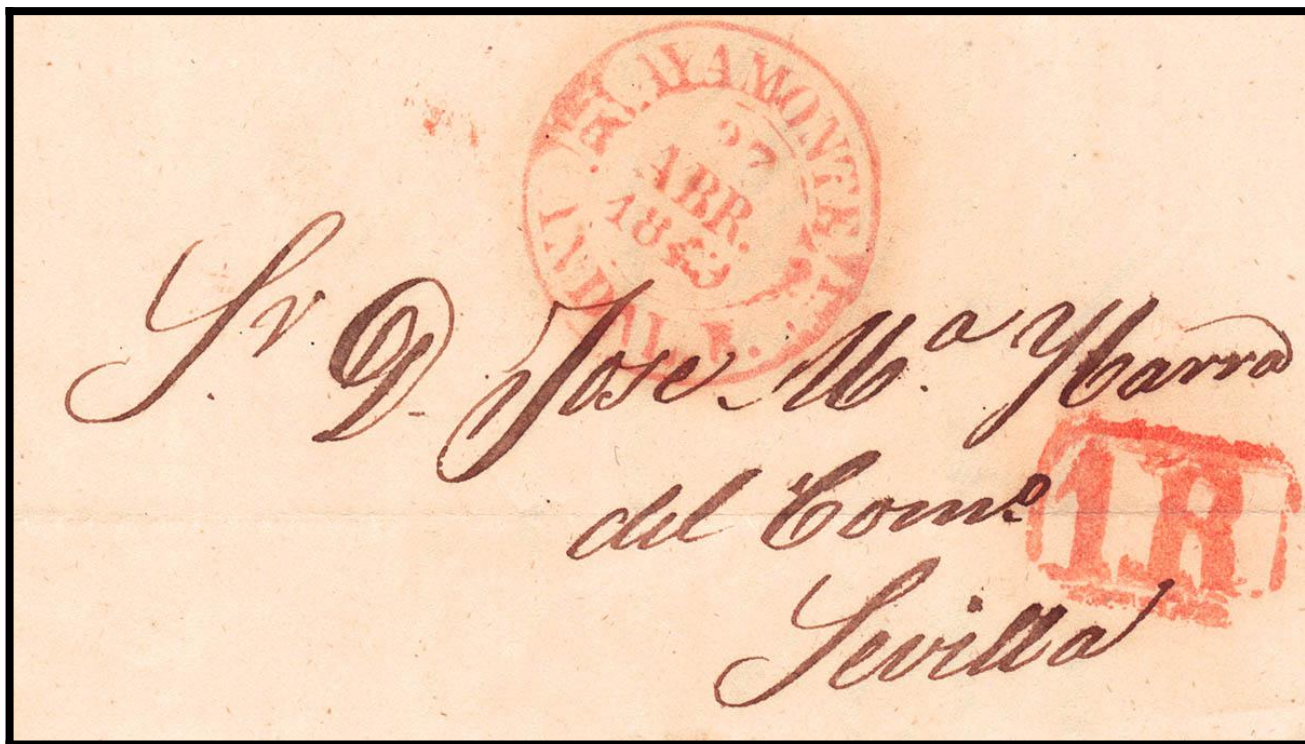 AYAMONTE
ANDAL. B.
27
ABR.
1843
Sr. D. Jose Mª. Ybarra
del Comº
1R
Sevilla